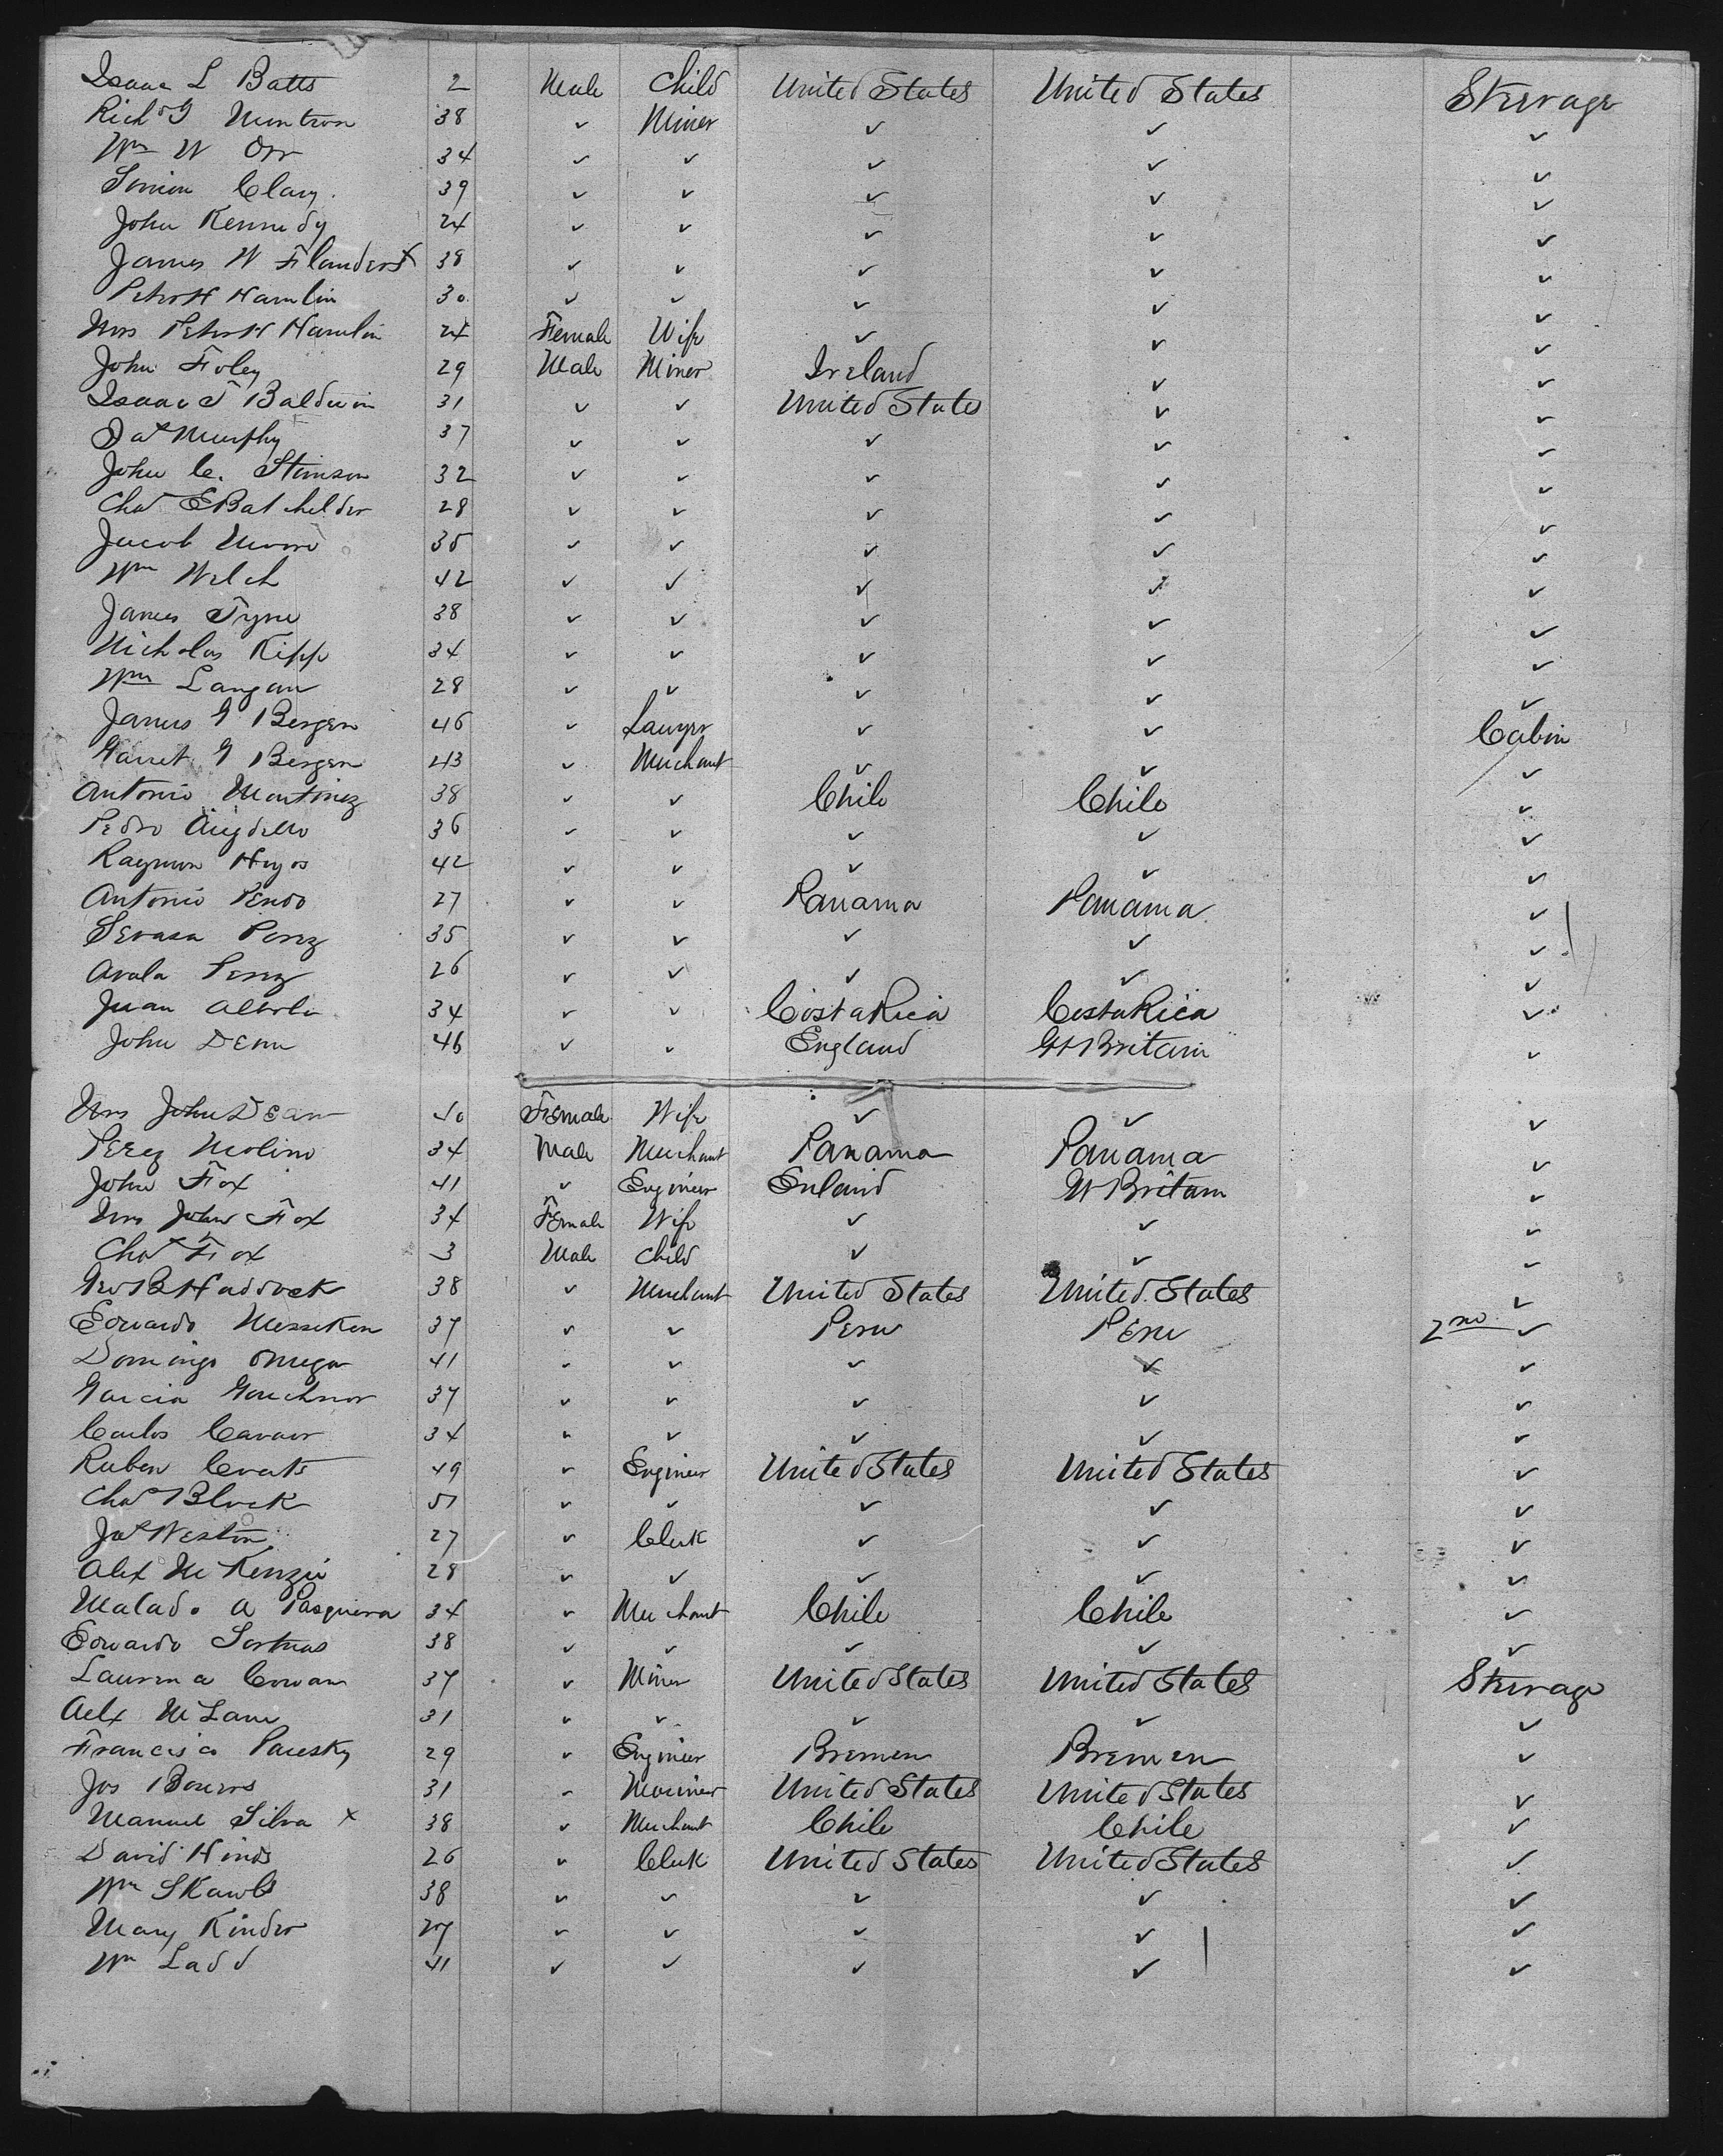 Isaac L Batts 2 Male Child United States United States Steerage
Richd G Muntron 38 ✓ Miner ✓ ✓ ✓
Wm W Orr 34 ✓ ✓ ✓ ✓ ✓
Simion Clary. 39 ✓ ✓ ✓ ✓ ✓
John Kennedy 24 ✓ ✓ ✓ ✓ ✓
James W Flanders x 38 ✓ ✓ ✓ ✓ ✓
Peter H Hamlin 30 ✓ ✓ ✓ ✓ ✓
Mrs Peter H Hamlin 24 Female Wife ✓ ✓ ✓
John Foley 29 Male Miner Ireland ✓ ✓
Isaac T Baldwin 31 ✓ ✓ United States ✓ ✓
Jas Murphy 37 ✓ ✓ ✓ ✓ ✓
John C. Stimson 32 ✓ ✓ ✓ ✓ ✓
Chas E Batchelder 28 ✓ ✓ ✓ ✓ ✓
Jacob Moore 35 ✓ ✓ ✓ ✓ ✓
Wm Welch 42 ✓ ✓ ✓ ✓ ✓
James Tyne 38 ✓ ✓ ✓ ✓ ✓
Nicholas Kipp 34 ✓ ✓ ✓ ✓ ✓
Wm Langan 28 ✓ ✓ ✓ ✓ ✓
James G Bergen 46 ✓ Lawyer ✓ ✓ Cabin
Garret G Bergen 43 ✓ Merchant ✓ ✓ ✓
Antonio Martinez 38 ✓ ✓ Chile Chile ✓
Pedro 36 ✓ ✓ ✓ ✓ ✓
Raymon Hugos 42 ✓ ✓ ✓ ✓ ✓
Antonio 27 ✓ ✓ Panama Panama ✓
Perez 35 ✓ ✓ ✓ ✓ ✓
Avala Perez 26 ✓ ✓ ✓ ✓ ✓
Juan 34 ✓ ✓ Costa Rica Costa Rica ✓
John Dean 46 ✓ ✓ England Gt Britain ✓
Mrs John Dean 40 Female Wife ✓ ✓ ✓
Perez Molino 34 Male Merchant Panama Panama ✓
John Fox 41 ✓ Engineer Enland Gt Britain ✓
Mrs John Fox 34 Female Wife ✓ ✓ ✓
Chas Fox 3 Male Child ✓ ✓ ✓
Geo B Haddock 38 ✓ Merchant United States United States ✓
Edwardo Messeken 37 ✓ ✓ Peru Peru 2nd ✓
Domingo Omega 41 ✓ ✓ ✓ ✓ ✓
Garcia 37 ✓ ✓ ✓ ✓ ✓
Carlos 34 ✓ ✓ ✓ ✓ ✓
Ruben 49 ✓ Engineer United States United States ✓
Chas Block 51 ✓ ✓ ✓ ✓ ✓
Jas Weston 27 ✓ Clerk ✓ ✓ ✓
Alex McKenzie 28 ✓ ✓ ✓ ✓ ✓
Malado A Pasquera 34 ✓ Merchant Chile Chile ✓
Edwardo 38 ✓ ✓ ✓ ✓ ✓
Cowan 37 ✓ Miner United States United States Steerage
Aelx McLane 31 ✓ ✓ ✓ ✓ ✓
Francis co Paresky 29 ✓ Engineer Bremen Bremen ✓
Jos Bowers 31 ✓ Mariner United States United States ✓
Manuel Silva x 38 ✓ Merchant Chile Chile ✓
David Hinds 26 ✓ Clerk United States United States ✓
Wm 38 ✓ ✓ ✓ ✓ ✓
Mary Kinder 27 ✓ ✓ ✓ ✓ ✓
Wm Ladd 41 ✓ ✓ ✓ ✓ ✓